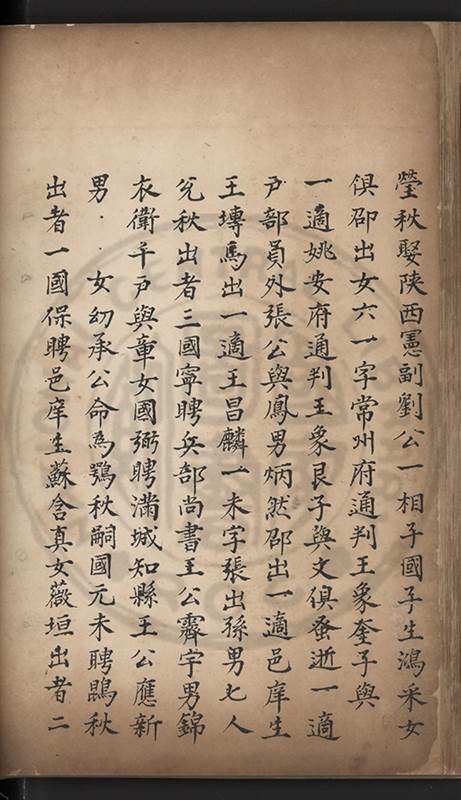 瑩秋娶陝西憲副劉公一相子國子生鴻采女
俱邵出女六一字常州府通判王象奎子與
一適姚安府通判王象艮子與文俱蚤逝一適
戶部員外張公與鳳男炳然邵出一適邑庠生
王塼馬出一適王昌麟一未字張出孫男七人
兊秋出者三國寧聘兵部尚書王公霽宇男錦
衣衛千戶與章女國弼聘滿城知縣王公應新
男··女幼承公命為鶚秋嗣國元未聘鵾秋
出者一國保聘邑庠生蘇含真女薇垣出者二